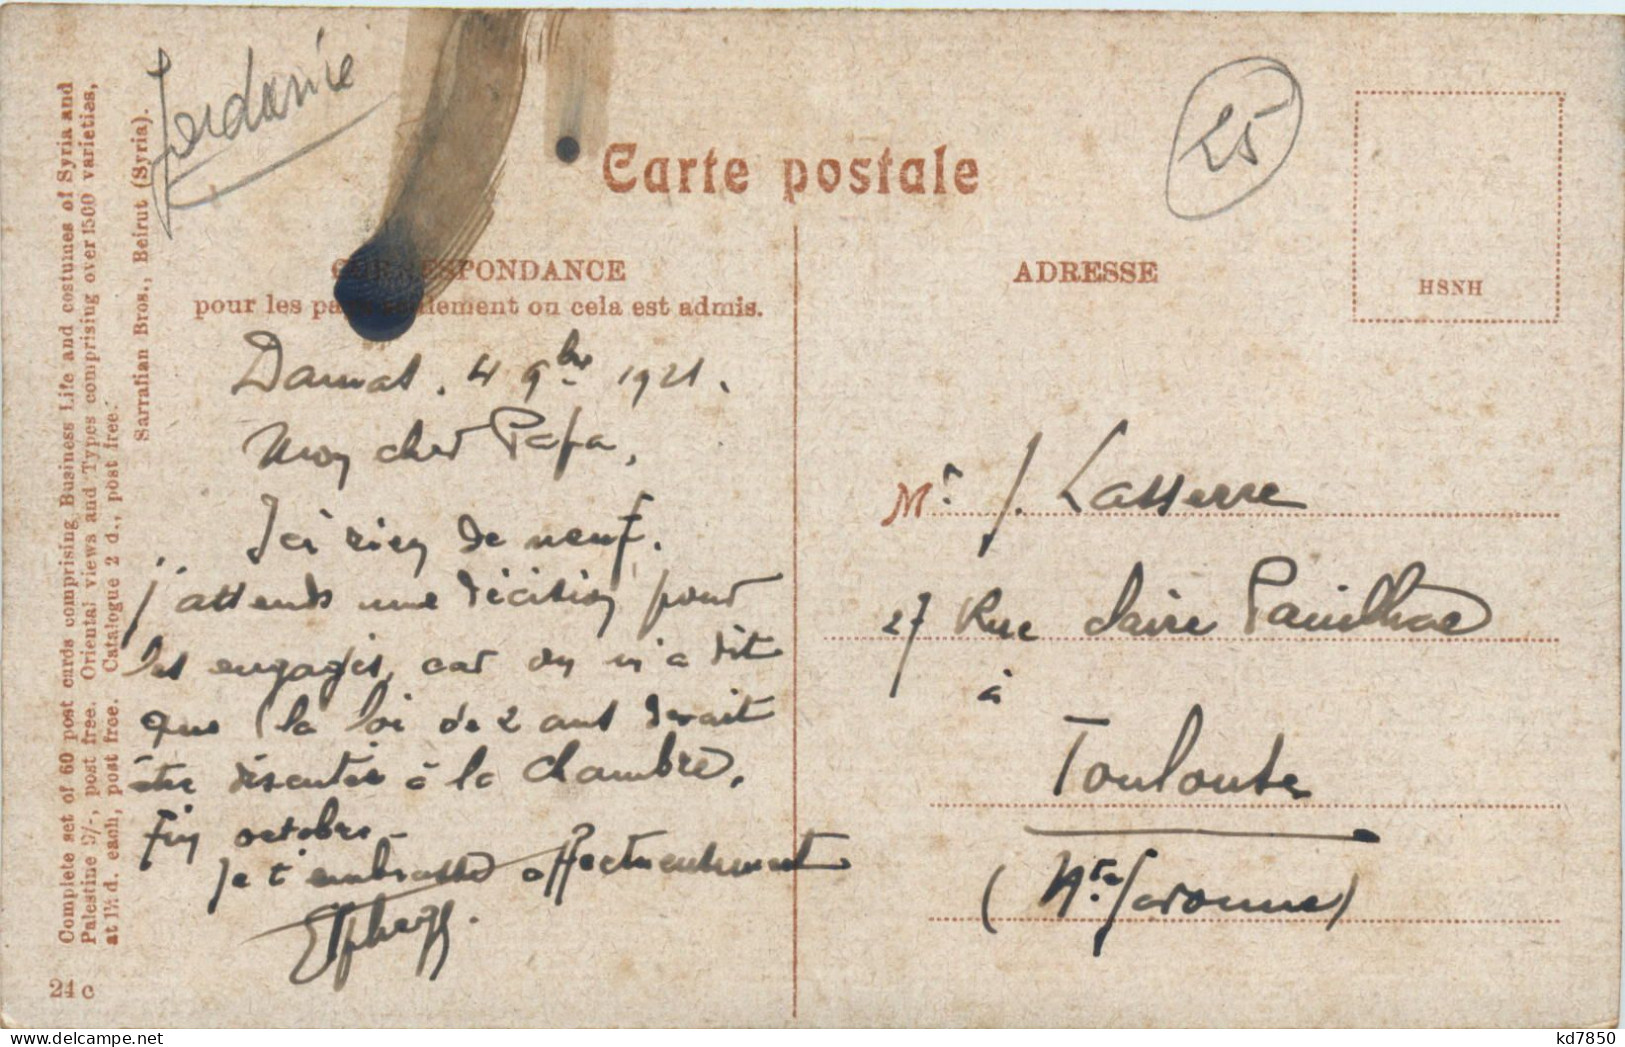 Complete set of 60 post cards comprising Business Life and costumes of Syria and
Palestine 9/-, post free. Oriental views and Types comprising over 1500 varieties,
at 1½ d. each, post free. Catalogue 2 d., post free.
Sarrafian Bros., Beirut (Syria).
24 c
Jordanie
25
Carte postale
CORRESPONDANCE
pour les pays seulement ou cela est admis.
Damas. 4 9bre 1921.
Mon cher Papa,
Ici rien de neuf.
j'attends une décision pour
les engagés, car on m'a dit
que la loi de 2 ans devait
être discutée à la chambre,
fin octobre.
Je t'embrasse affectueusement
ADRESSE
HSNH
Mr. J. Lasserre
27 Rue Claire Pauilhac
à
Toulouse
(Hte. Garonne)
kd7850